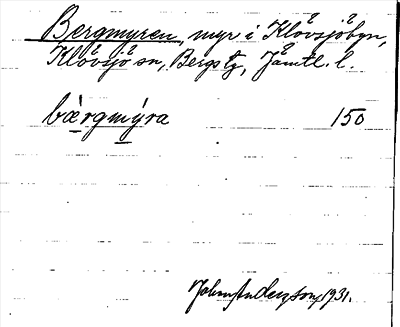 Bergmyren, myr i Klövsjöbyn,
Klövsjö sn, Bergs tg, Jämtl. l.
bærgmýra 150
John Anderzson, 1931.